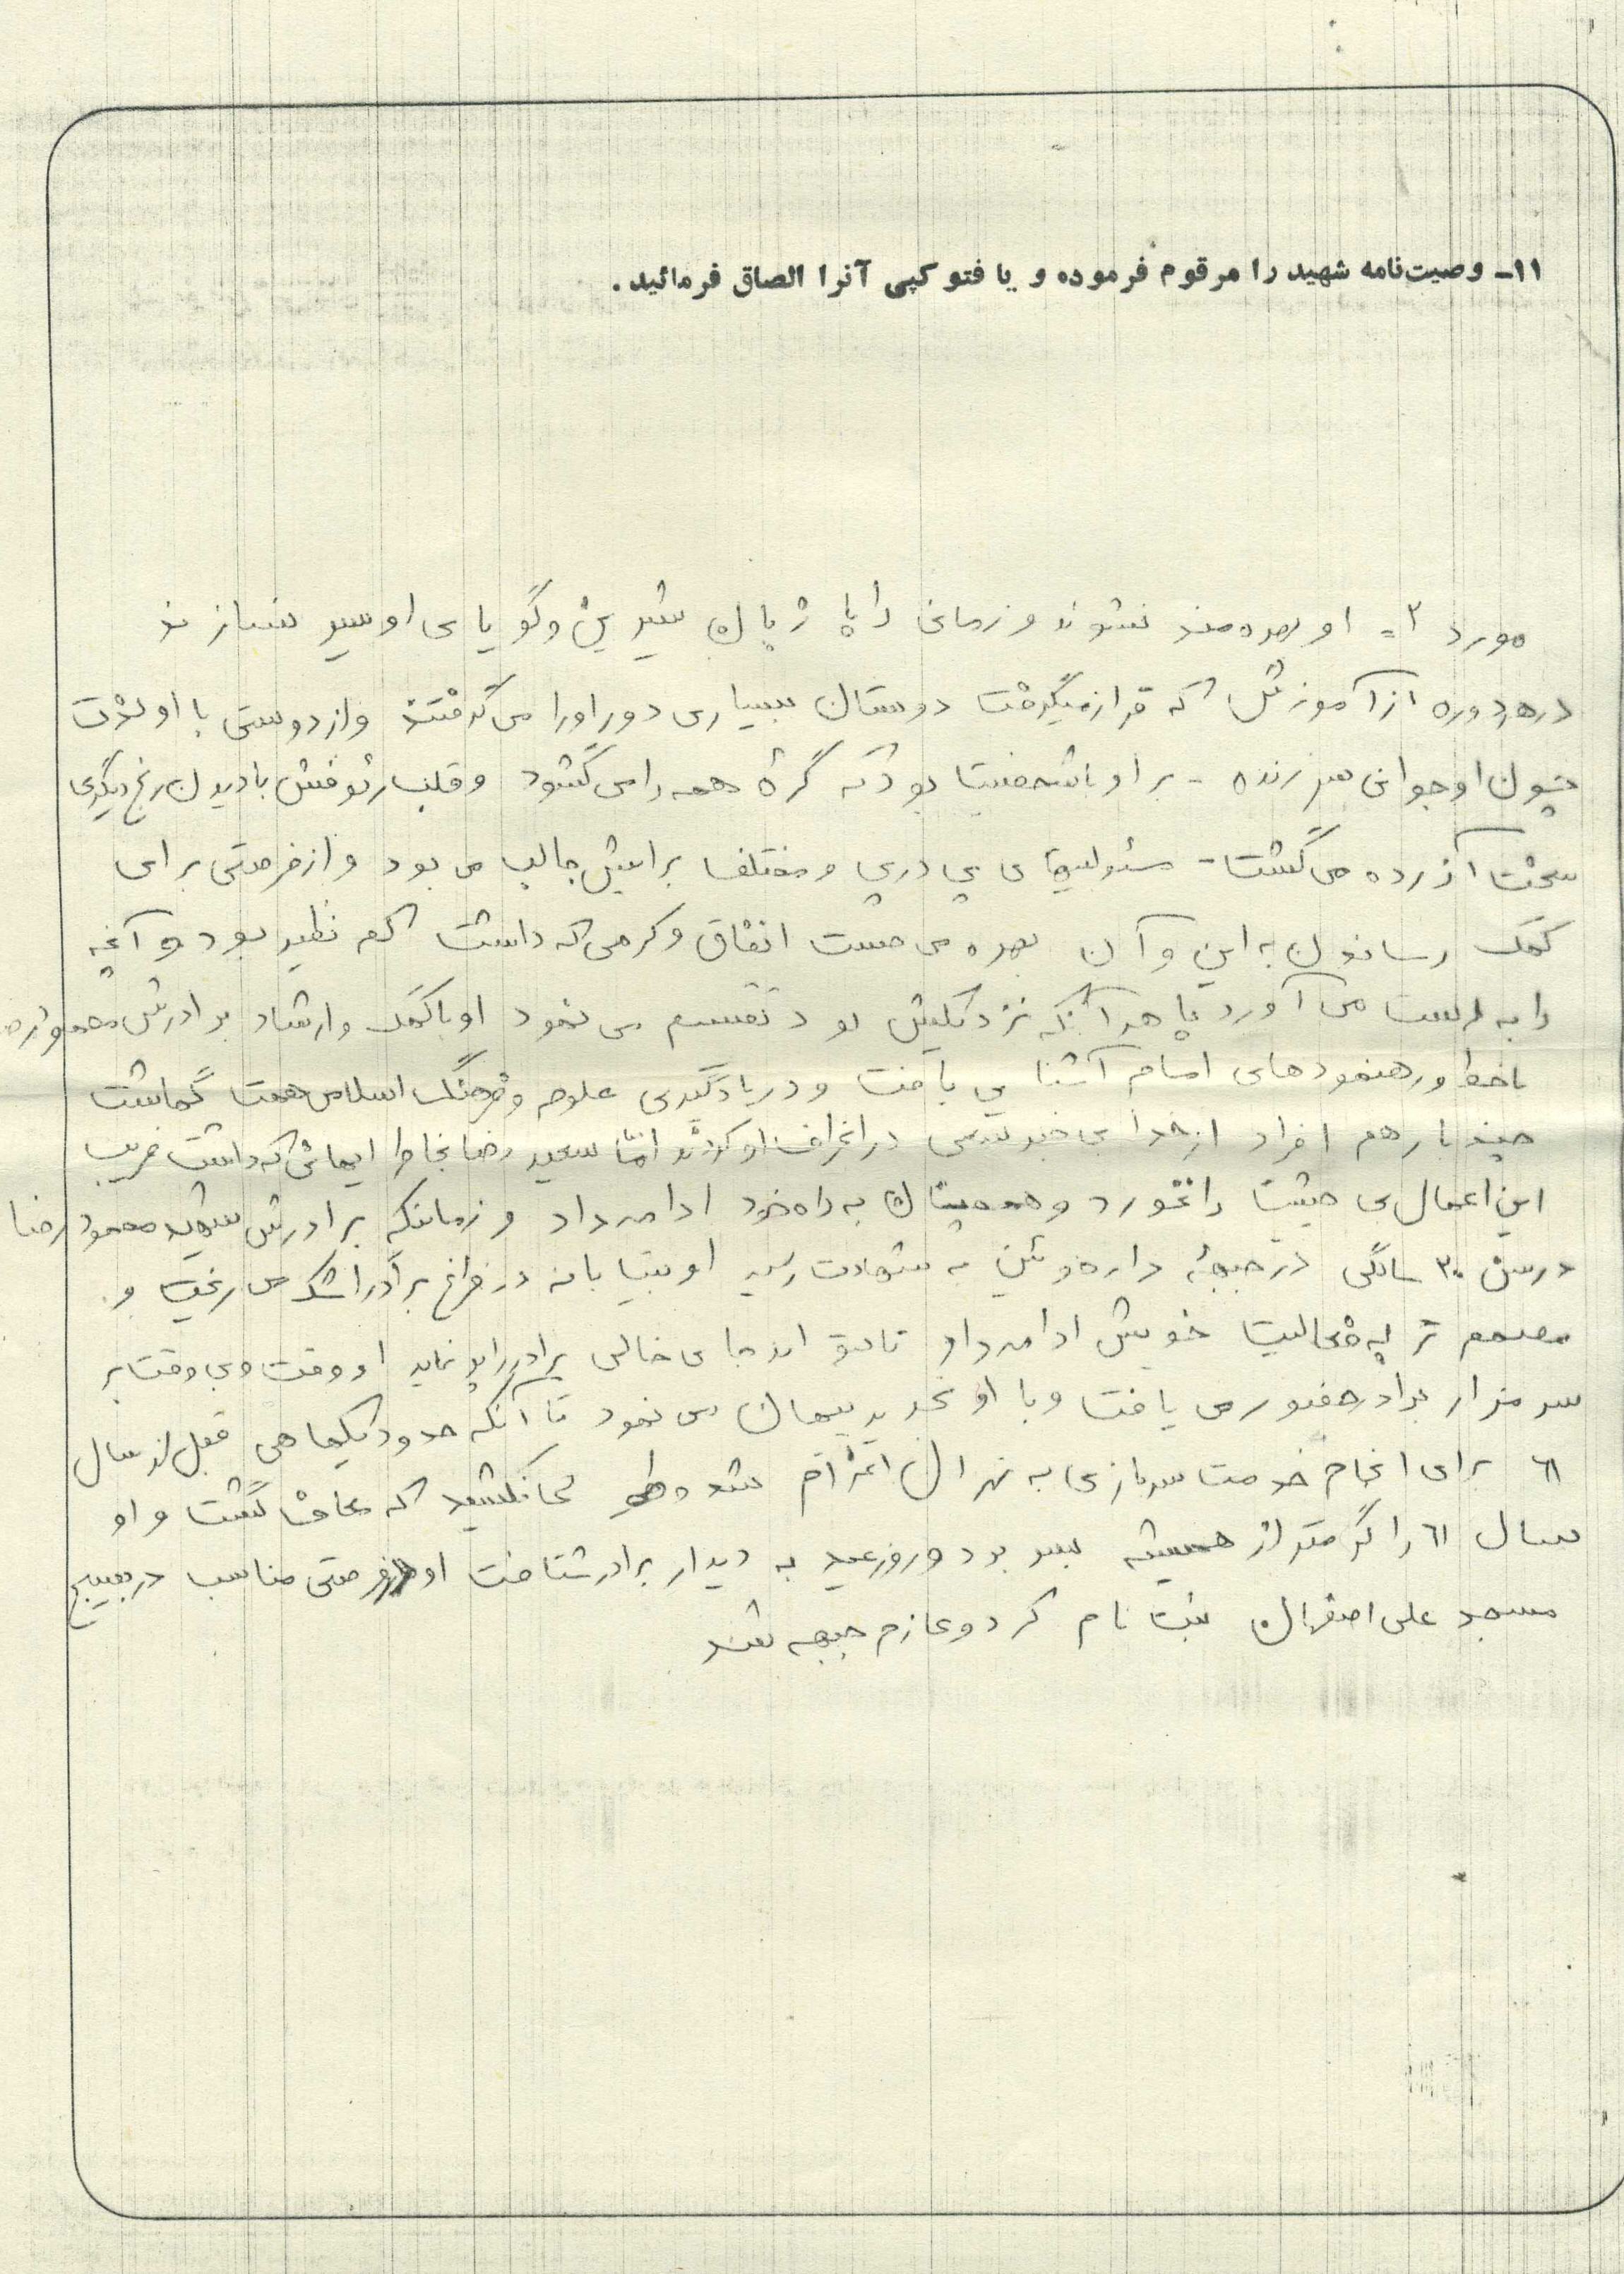 ۱۱ـ وصیت‌نامه شهید را مرقوم فرموده و یا فتوکپی آنرا الصاق فرمائید.
مورد ۲ = او بهره‌مند نشوند و زمانی را با زبان شیرین و گویای او سپر نسازند
در هر دوره از آموزش که قرار میگرفت دوستان بسیاری دور او را می گرفتند و از دوستی با او لذت
چون او جوانی سرزنده - با شخصیت بود که گره همه را می گشود و قلب رئوفش با دیدن رنج دیگری
سخت آزرده می گشت - مسئولیتهای پی در پی و مختلف برایش جالب می بود و از فرصتی برای
کمک رساندن به این و آن بهره می جست انفاق و کرمی که داشت کم نظیر بود و آنچه
را بدست می آورد با هر آنکه نزدیکش بود تقسیم می نمود او با کمک و ارشاد برادرش محمودرضا
با خط و رهنمودهای امام آشنایی یافت و در یادگیری علوم و فرهنگ اسلامی همت گماشت
چند بار هم افراد از خدا بی خبر سعی در انحراف او کردند اما سعید رضا بخاطر ایمانی که داشت فریب
این اعمال بی حیثیت را نخورد و همچنان به راه خود ادامه داد و زمانیکه برادرش شهید محمود رضا
در سن ۲۰ سالگی در جبهه دارخوئین به شهادت رسید او بیتابانه در فراغ برادر اشک می ریخت و
مصمم تر به فعالیت خویش ادامه داد تا بتواند جای خالی برادر را پر نماید او وقت و بی وقت بر
سر مزار برادر حضور می یافت و با او تجدید پیمان می نمود تا آنکه حدود یکماهی قبل از سال
۶۱ برای انجام خدمت سربازی به تهران اعزام شد ولی نکشید که معاف گشت و او
سال ۶۱ را گرمتر از همیشه بسر برد و روز عید به دیدار برادر شتافت او در فرصتی مناسب در بسیج
مسجد علی اصغر ثبت نام کرد و عازم جبهه شد